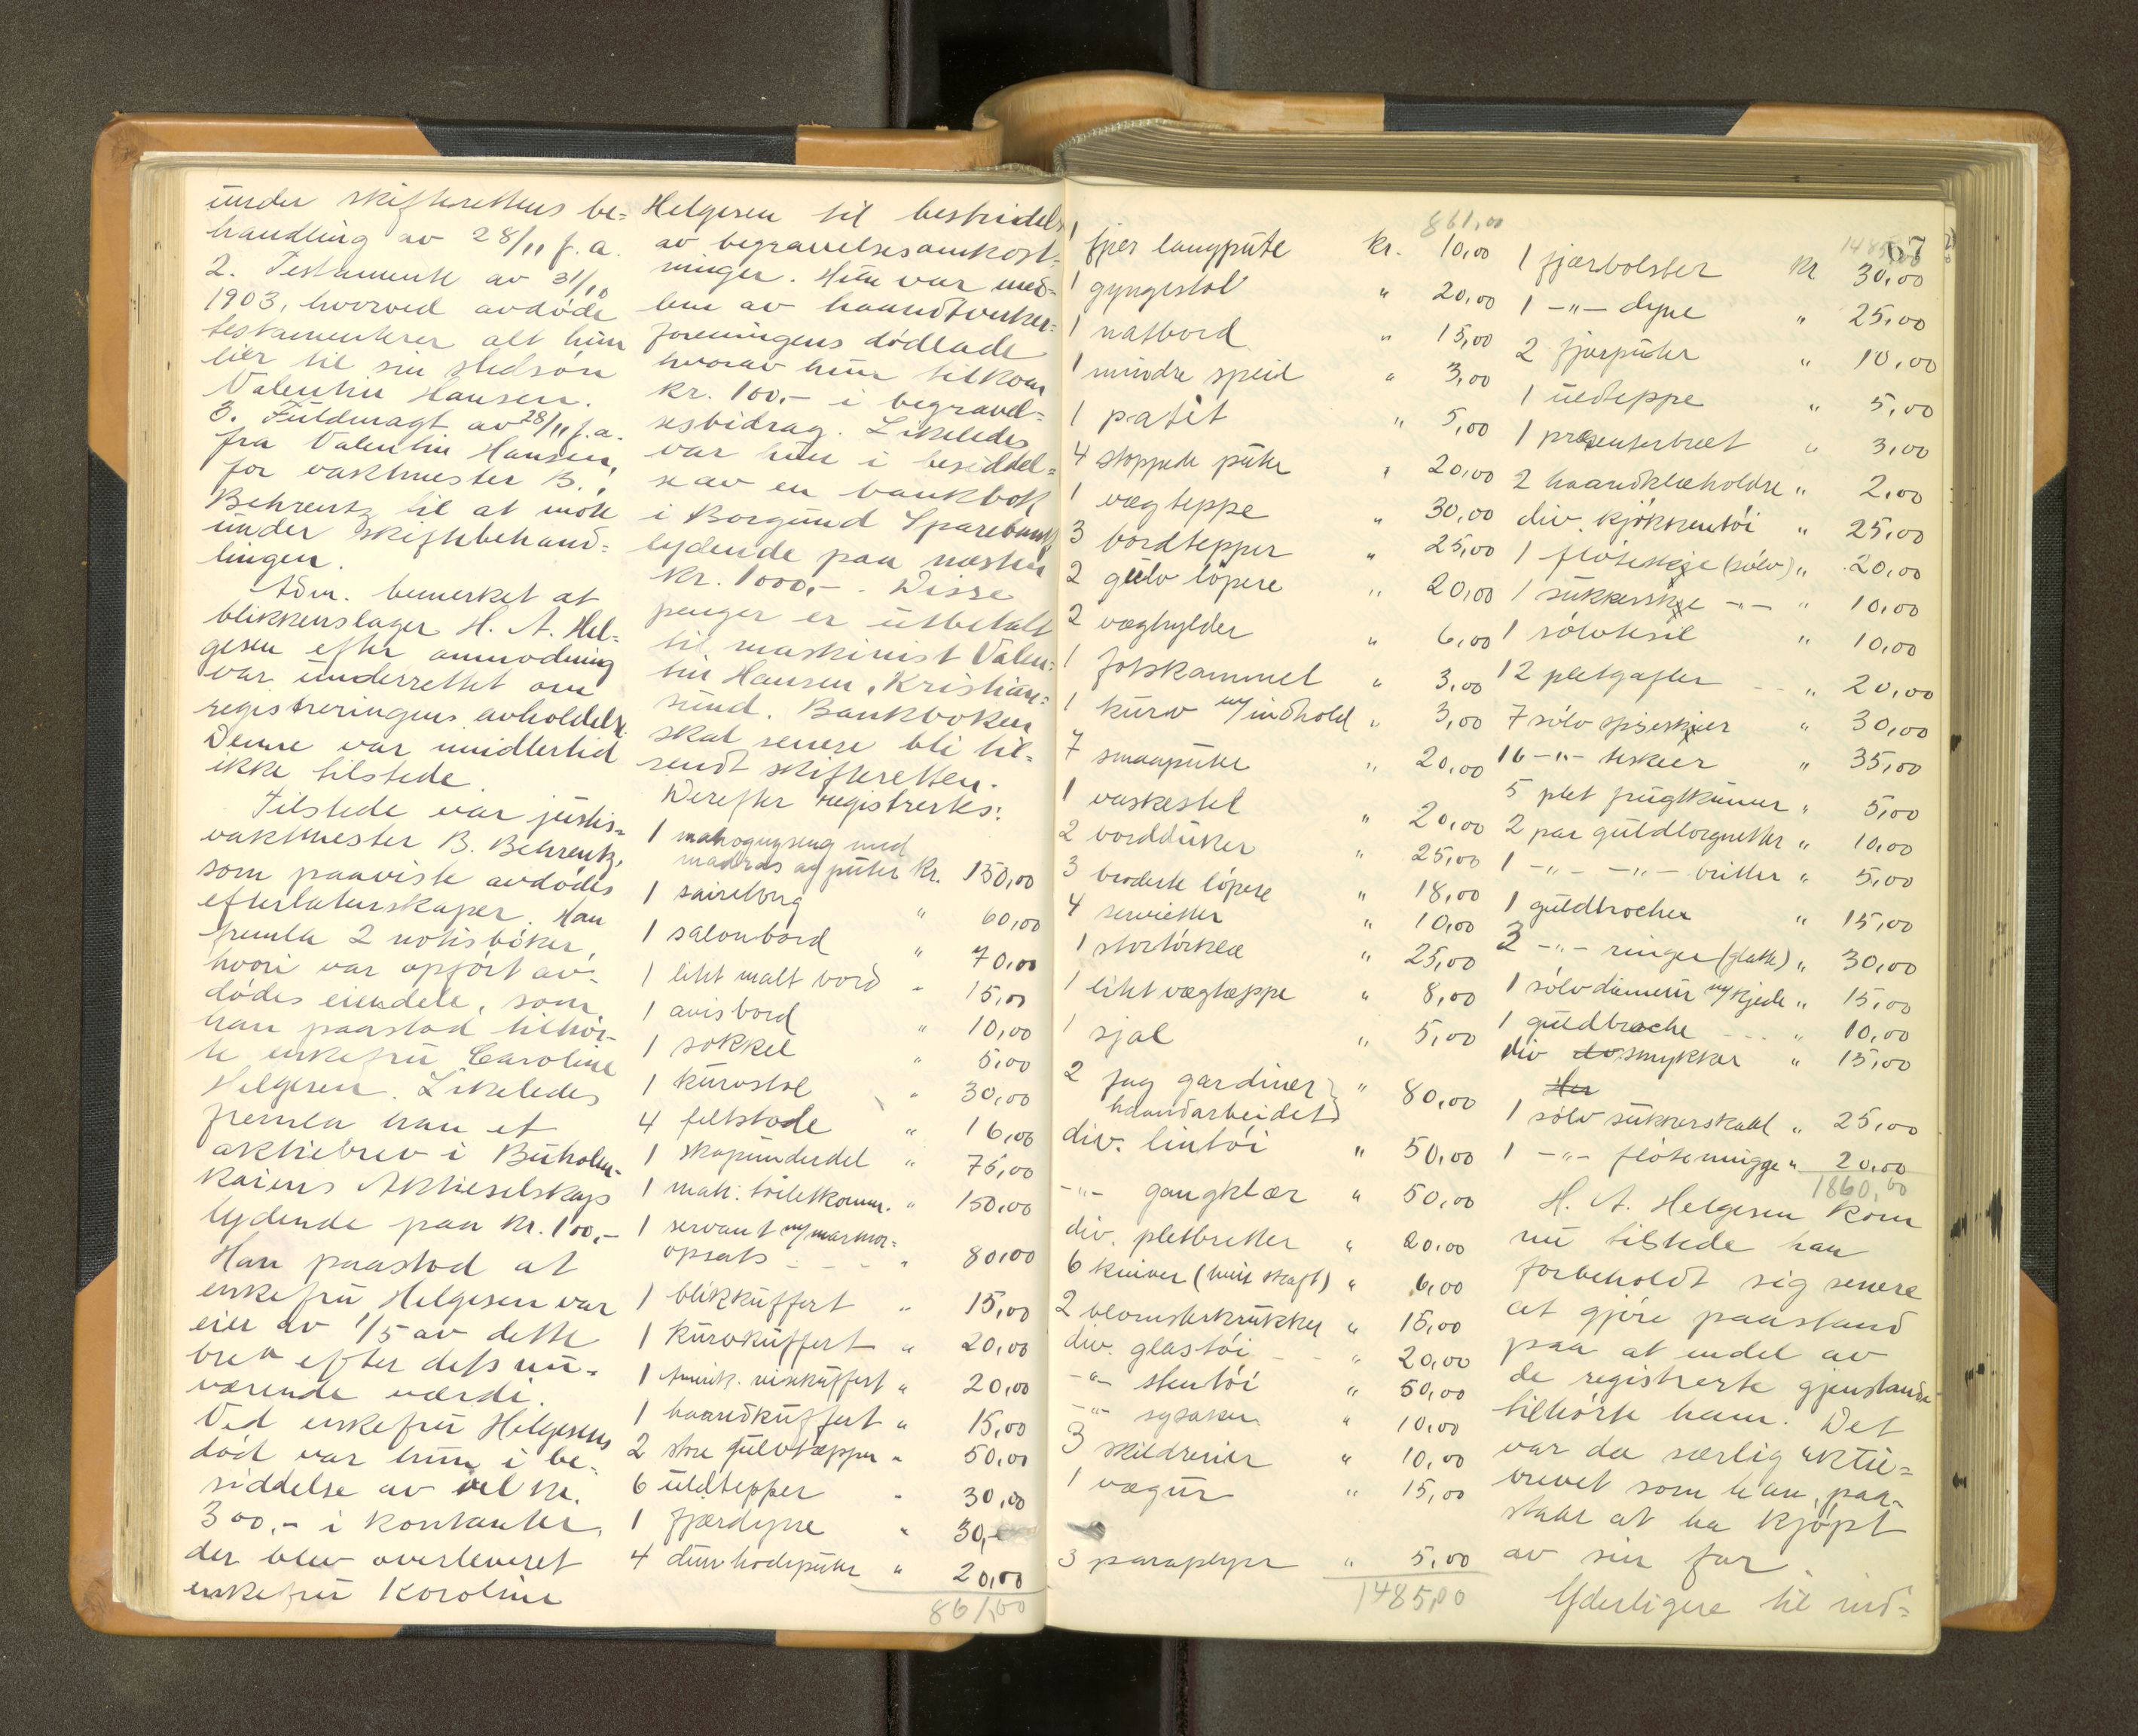 under skifterettens be=
handling av 28/11 f.a.
2. Testamente av 31/10
1903, hvorved avdøde
testamenterer alt hun
eier til sin stedsøn
Valentin Hansen.
3. Fuldmagt av 28/11 f.a.
fra Valentin Hansen,
for vaktmester B.
Behrentz til at møte
under skiftebehand=
lingen.
Adm. bemerket at
blikkenslager H. A. Hel=
gesen efter anmodning
var underrettet om
registreringens avholdelse.
Denne var imidlertid
ikke tilstede.
Tilstede var justis=
vaktmester B. Behrentz,
som paaviste avdødes
efterlatenskaper. Han
fremla 2 notisbøker,
hvori var opført av=
dødes eiendele, som
han paastod tilhør=
te enkefru Caroline
Helgesen. Likeledes
fremla han et
aktiebrev i Buholm-
kaiens Aktieselskap
lydende paa kr. 100,-
Han paastod at
enkefru Helgesen var
eier av 1/5 av dette
brev efter dets nu=
værende værdi.
Ved enkefru Helgesens
død var hun i be=
siddelse av vel kr.
300,- i kontanter,
der blev overleveret
enkefru Karoline
Helgesen til bestridelse
av begravelsesomkost=
ninger. Hun var med=
lem av haandverker=
foreningens dødlade
hvorav hun tilkom
kr. 100,- i begravel=
sesbidrag. Likeledes
var hun i besiddel=
se av en bankbok
i Borgund Sparebank
lydende paa næsten
kr. 1000,-. Disse
penger er utbetalt
til maskinist Valen=
tin Hansen, Kristian=
sund. Bankboken
skal senere bli til=
sendt skifteretten.
Derefter registrertes:
1 mahognyseng med
madras og puter kr. 150,00
1 " 60,00
1 salonbord " 70,00
1 litet malt bord " 15,00
1 avisbord " 10,00
1 sokkel " 5,00
1 kurvstol " 30,00
4 feltstole " 16,00
1 skapunderdel " 75,00
1 mah. toiletkomm. " 150,00
1 servant m/marmor=
opsats " 80,00
1 blikkuffert " 15,00
1 kurvkuffert " 20,00
1 Amerik. reisekuffert " 20,00
1 haandkuffert " 15,00
2 store gulvtæpper " 50,00
6 uldtepper " 30,00
1 fjærdyne " 30,-
4 dun hodeputer " 20,00
861,00
861,00
1 fjær langpute kr. 10,00
1 gyngestol " 20,00
1 natbord " 15,00
1 mindre speil " 3,00
1 " 5,00
4 stoppede puter " 20,00
1 vægteppe " 30,00
3 bordtepper " 25,00
2 gulv løpere " 20,00
2 væghylder " 6,00
1 fotskammel " 3,00
1 kurv m/indhold " 3,00
7 smaaputer " 20,00
1 vaskestel " 20,00
2 bordduker " 25,00
3 broderte løpere " 18,00
4 servietter " 10,00
1 stortørklæ " 25,00
1 litet vægtæppe " 8,00
1 sjal " 5,00
2 fag gardiner " 80,00
haandarbeidet
div. lintøi " 50,00
-"- gangklær " 50,00
div. pletbretter " 20,00
6 kniver (hvit skaft) " 6,00
2 blomsterkrukker " 15,00
div. glastøi " 20,00
-"- stentøi " 50,00
-"- sysaker " 10,00
3 skildrerier " 10,00
1 vægur " 15,00
3 paraplyer " 5,00
1485,00
67
1 fjærbolster kr 30,00
1 -"- dyne " 25,00
2 fjærputer " 10,00
1 uldteppe " 5,00
1 præsenterbret " 3,00
2 haandklæholdre " 2,00
div. kjøkkentøi " 25,00
1 fløteskje (sølv) " 20,00
1 sukkerskje -"- " 10,00
1 sølvtesil " 10,00
12 pletgafler " 20,00
7 sølv spiseskjeer " 30,00
16 -"- teskeer " 35,00
5 plet frugtkniver " 5,00
2 par guldlorgnetter " 10,00
1 -"- -"- briller " 5,00
1 guldbrocher " 15,00
3 -"- ringer (glatte) " 30,00
1 sølv dameur m/kjede " 15,00
1 guldbroche " 10,00
div do smykker " 15,00
Her
1 sølv sukkerskaal " 25,00
1 -"- fløtemugge " 20,00
1860,00
H. A. Helgesen kom
nu tilstede han
forbeholdt sig senere
at gjøre paastand
paa at endel av
de registrerte gjenstande
tilhørte ham. Det
var da særlig aktie=
brevet som han paa-
staar at ha kjøpt
av sin far.
Yderligere til ind=